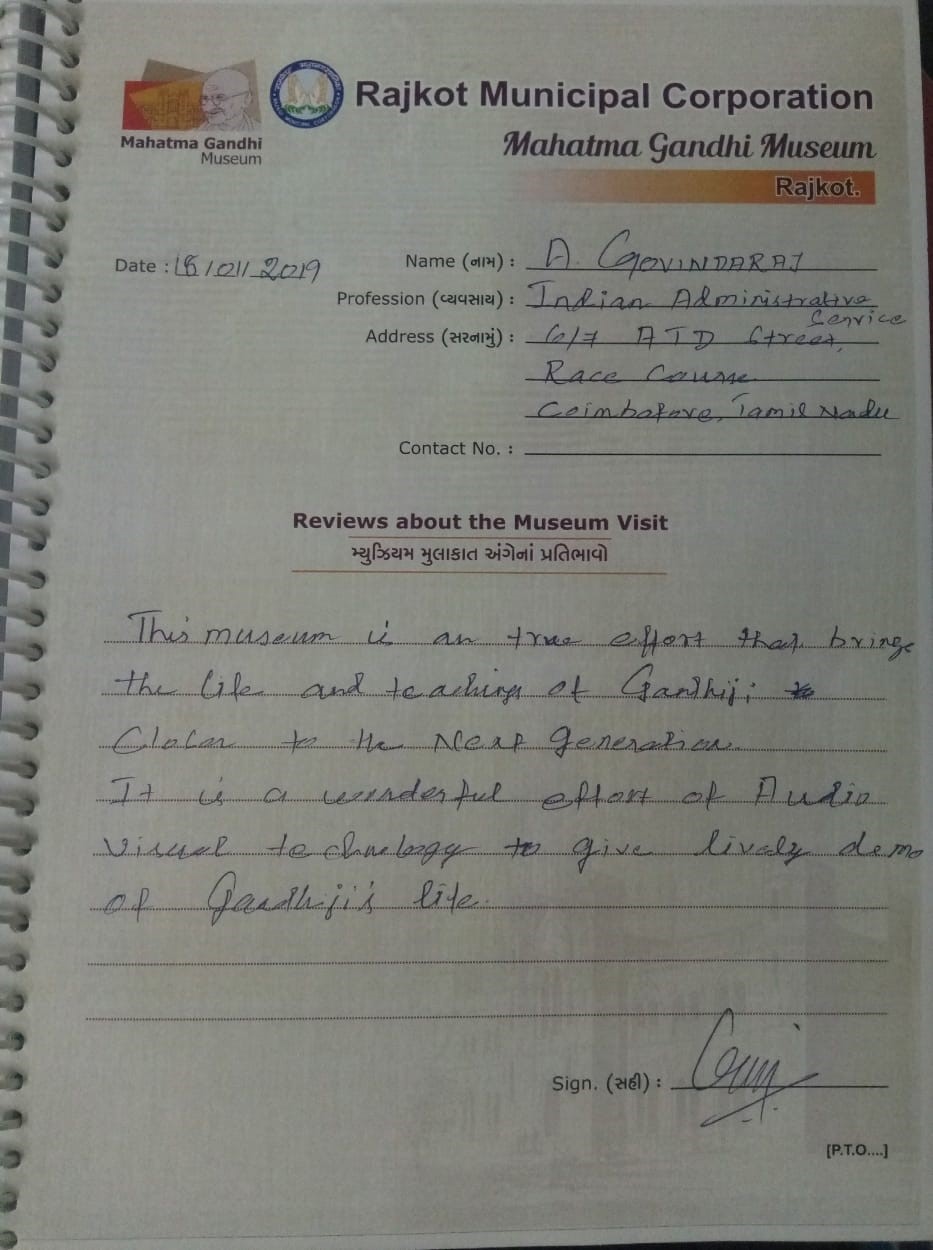 Rajkot Municipal Corporation
Mahatma Gandhi Museum
Mahatma Gandhi Museum
Rajkot.
Date : 18/01/2019
Name (નામ) : A. GOVINDARAJ
Profession (વ્યવસાય) : Indian Administrative
Service
Address (સરનામું) : 6/7 ATD Street,
Race Course
Coimbatore, Tamil Nadu
Contact No. :
Reviews about the Museum Visit
મ્યુઝિયમ મુલાકાત અંગેનાં પ્રતિભાવો
This museum is an true effort that brings
the life and teachings of Gandhiji
Closer to the Next Generation.
It is a wonderful effort of Audio
Visual technology to give lively demo
of Gandhiji's life.
Sign. (સહી) :
[P.T.O....]